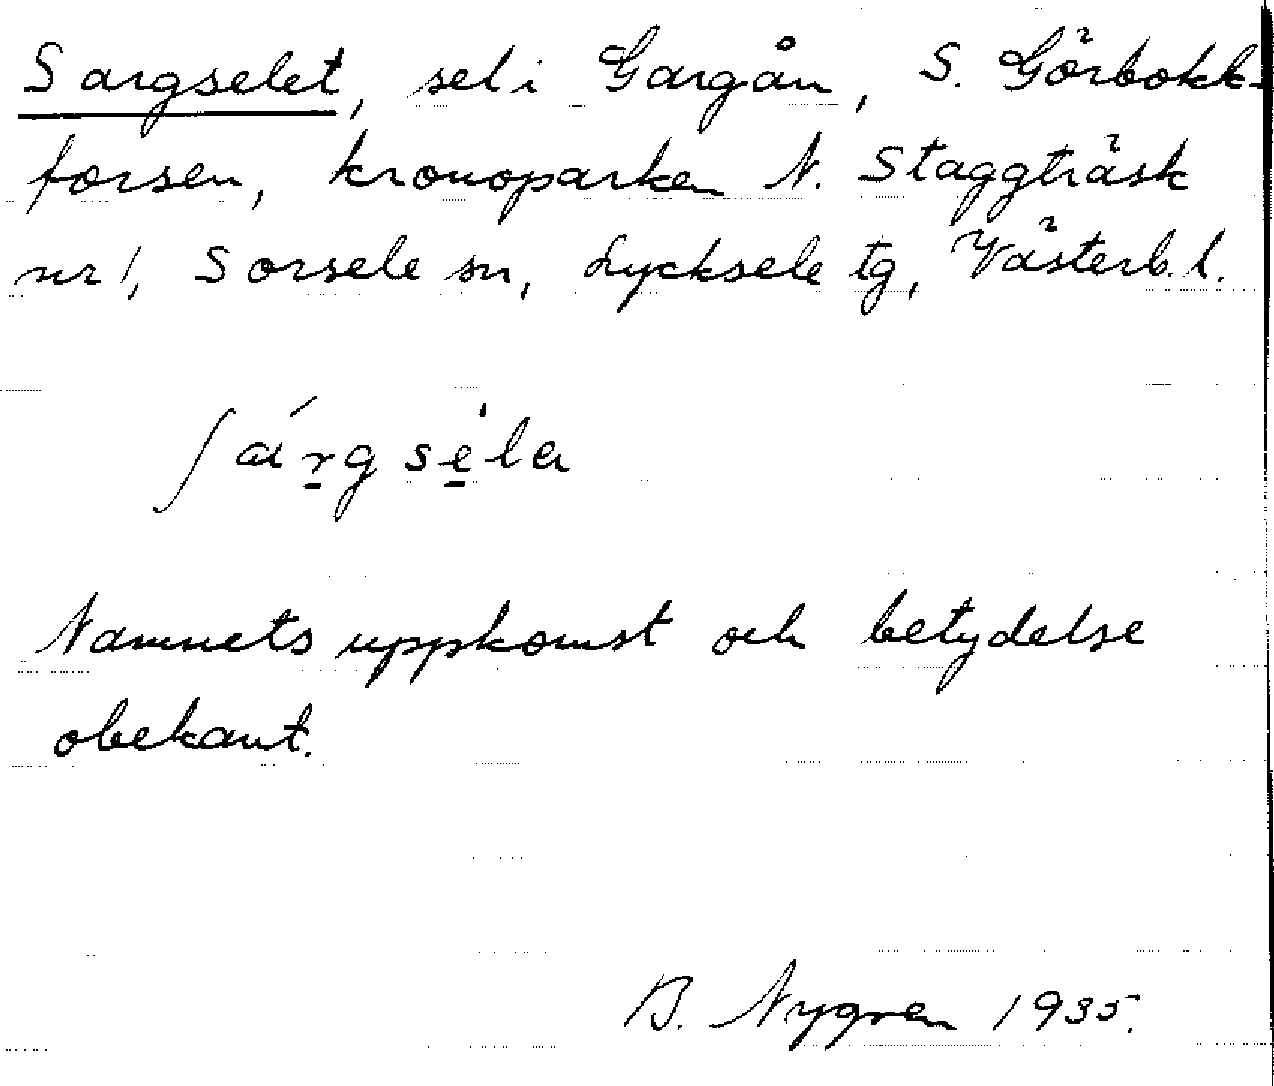 Sargselet, sel i Gargån, S. Görbokk-
forsen, kronoparken N. Staggträsk
nr 1, Sorsele sn, Lycksele tg, Västerb. l.
ʃárgse̠la
Namnets uppkomst och betydelse
obekant.
B. Nygren 1935.